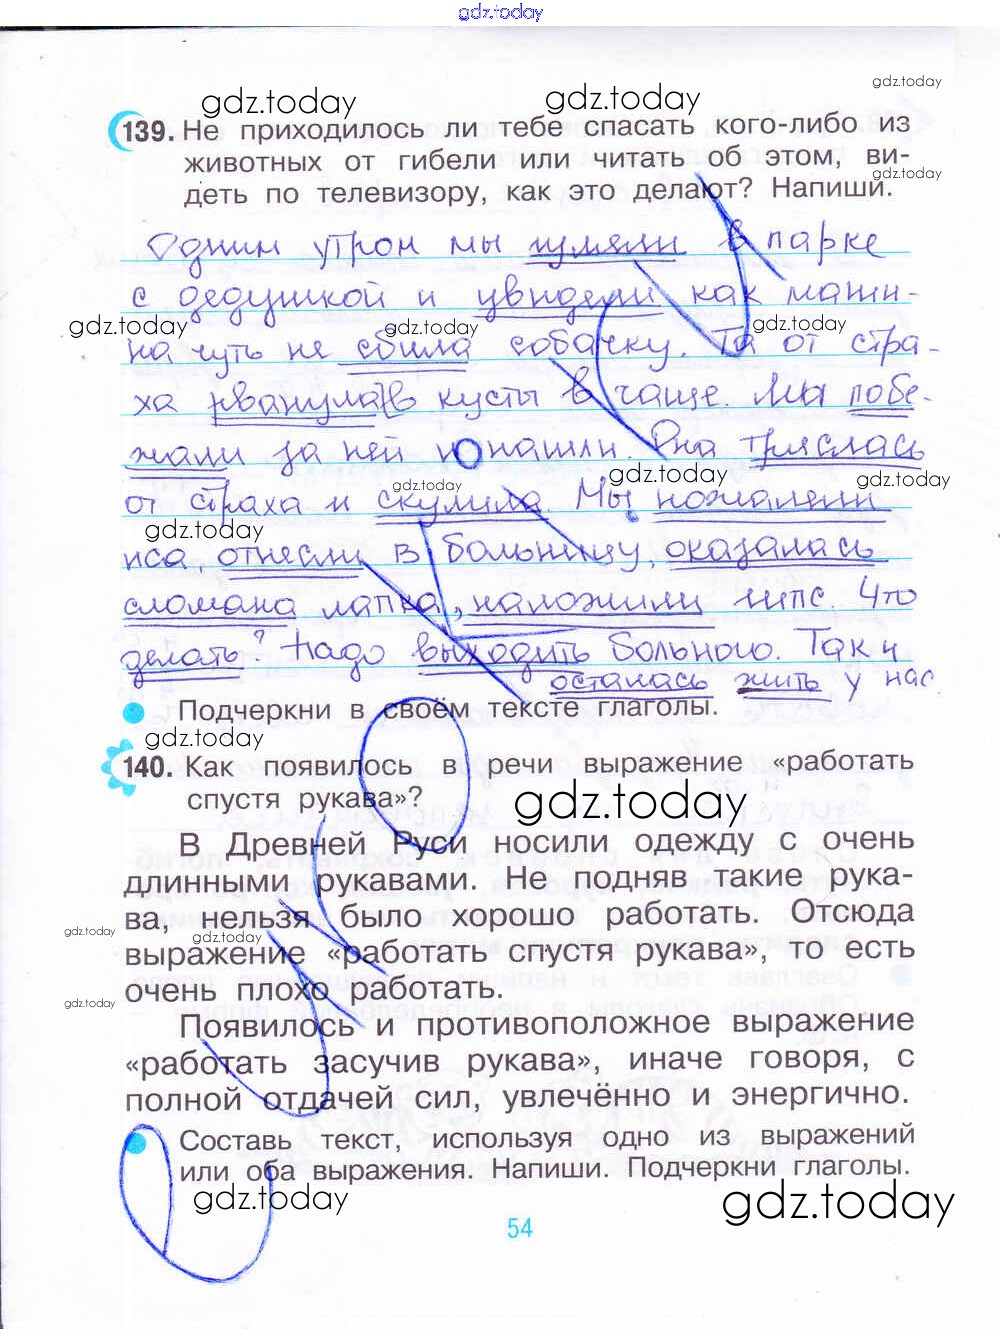 gdz.today
gdz.today
gdz.today gdz.today
139. Не приходилось ли тебе спасать кого-либо из
животных от гибели или читать об этом, ви-
gdz.today
деть по телевизору, как это делают? Напиши.
Одним утром мы гуляли в парке
с дедушкой и увидели как маши-
gdz.today gdz.today gdz.today
на чуть не сбила собачку. Та от стра-
ха рванула в кусты в чаще. Мы побе-
жали за ней и нашли. Она тряслась
gdz.today gdz.today gdz.today
от страха и скулила. Мы пожалели
gdz.today
пса, отнесли в больницу, оказалась
сломана лапка, наложили гипс. Что
делать? Надо выходить больного. Так и
осталась жить у нас
Подчеркни в своём тексте глаголы.
gdz.today
140. Как появилось в речи выражение «работать
спустя рукава»?
gdz.today
В Древней Руси носили одежду с очень
длинными рукавами. Не подняв такие рука-
ва, нельзя было хорошо работать. Отсюда
gdz.today gdz.today
выражение «работать спустя рукава», то есть
очень плохо работать.
gdz.today
Появилось и противоположное выражение
«работать засучив рукава», иначе говоря, с
полной отдачей сил, увлечённо и энергично.
Составь текст, используя одно из выражений
или оба выражения. Напиши. Подчеркни глаголы.
gdz.today gdz.today
54